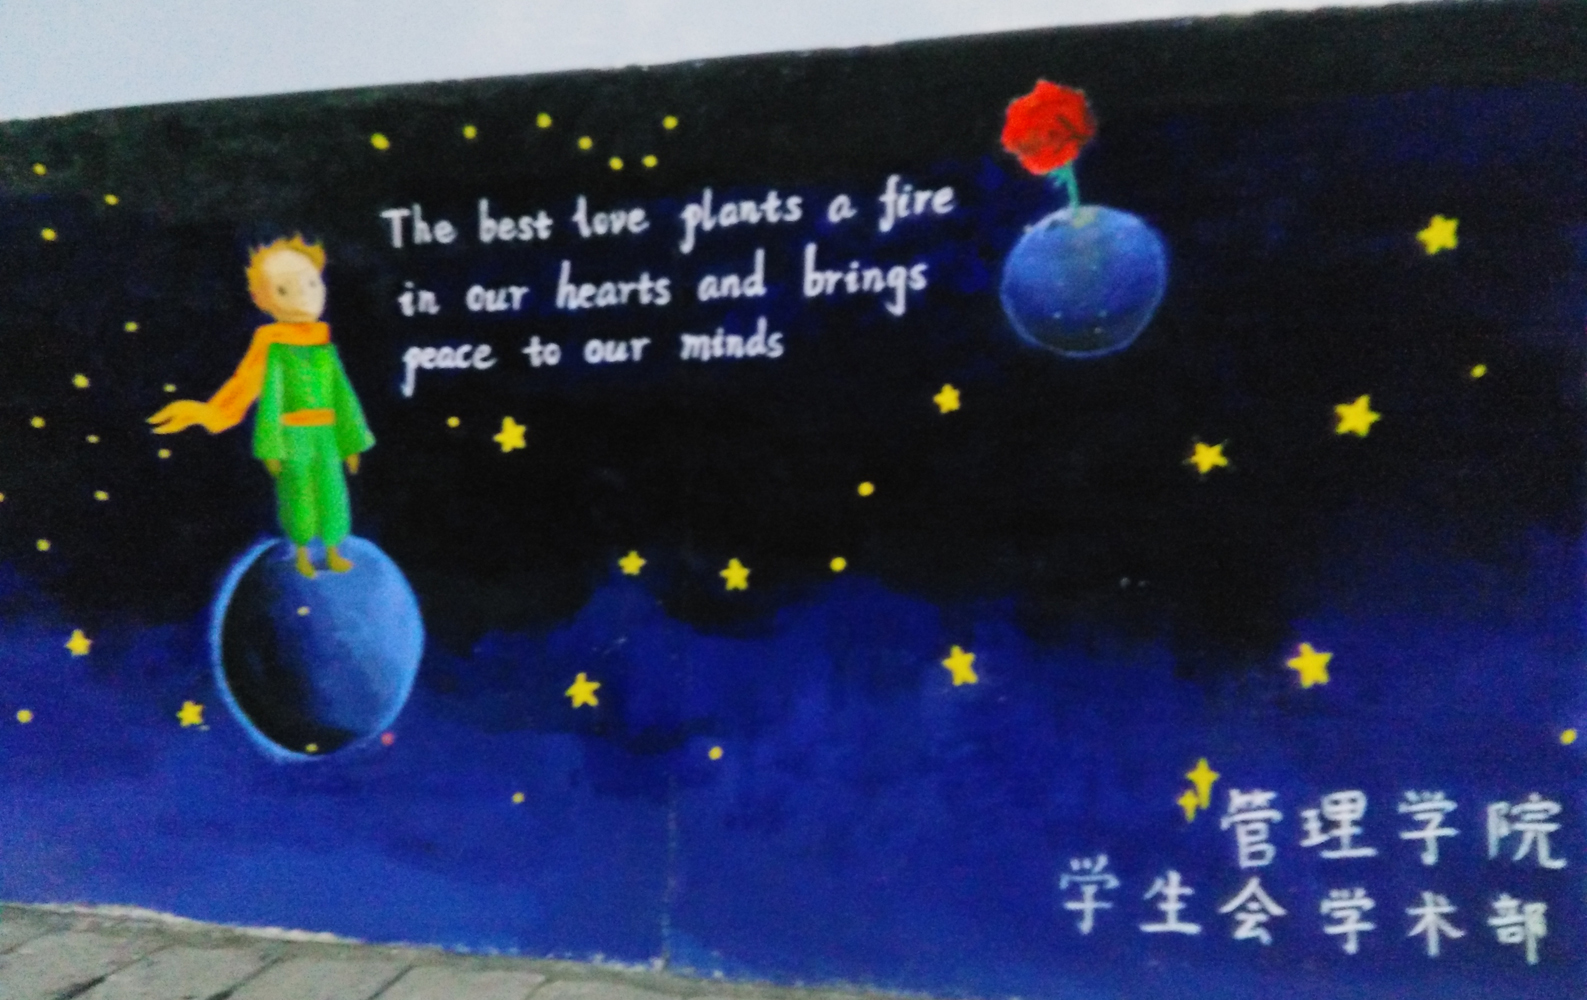 The best love plants a fire
in our hearts and brings
peace to our minds
管理学院
学生会学术部